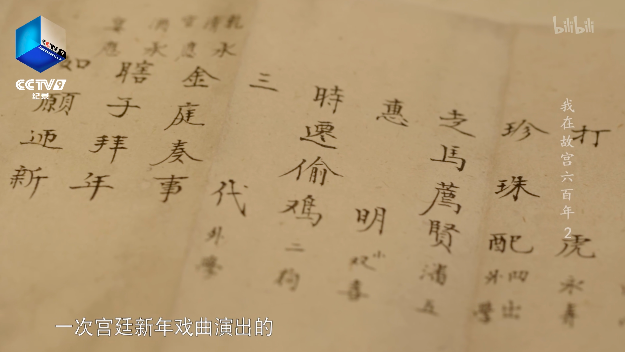 CCTV9
纪录
bilibili
我在故宫六百年 2
打虎
珍珠配 四出 外學
走馬薦賢 浦五
惠明 小双喜
時遷偷鸡 二狗
三代 外學
金庭奏事
瞎子拜年
如願迎新
一次宫廷新年戏曲演出的